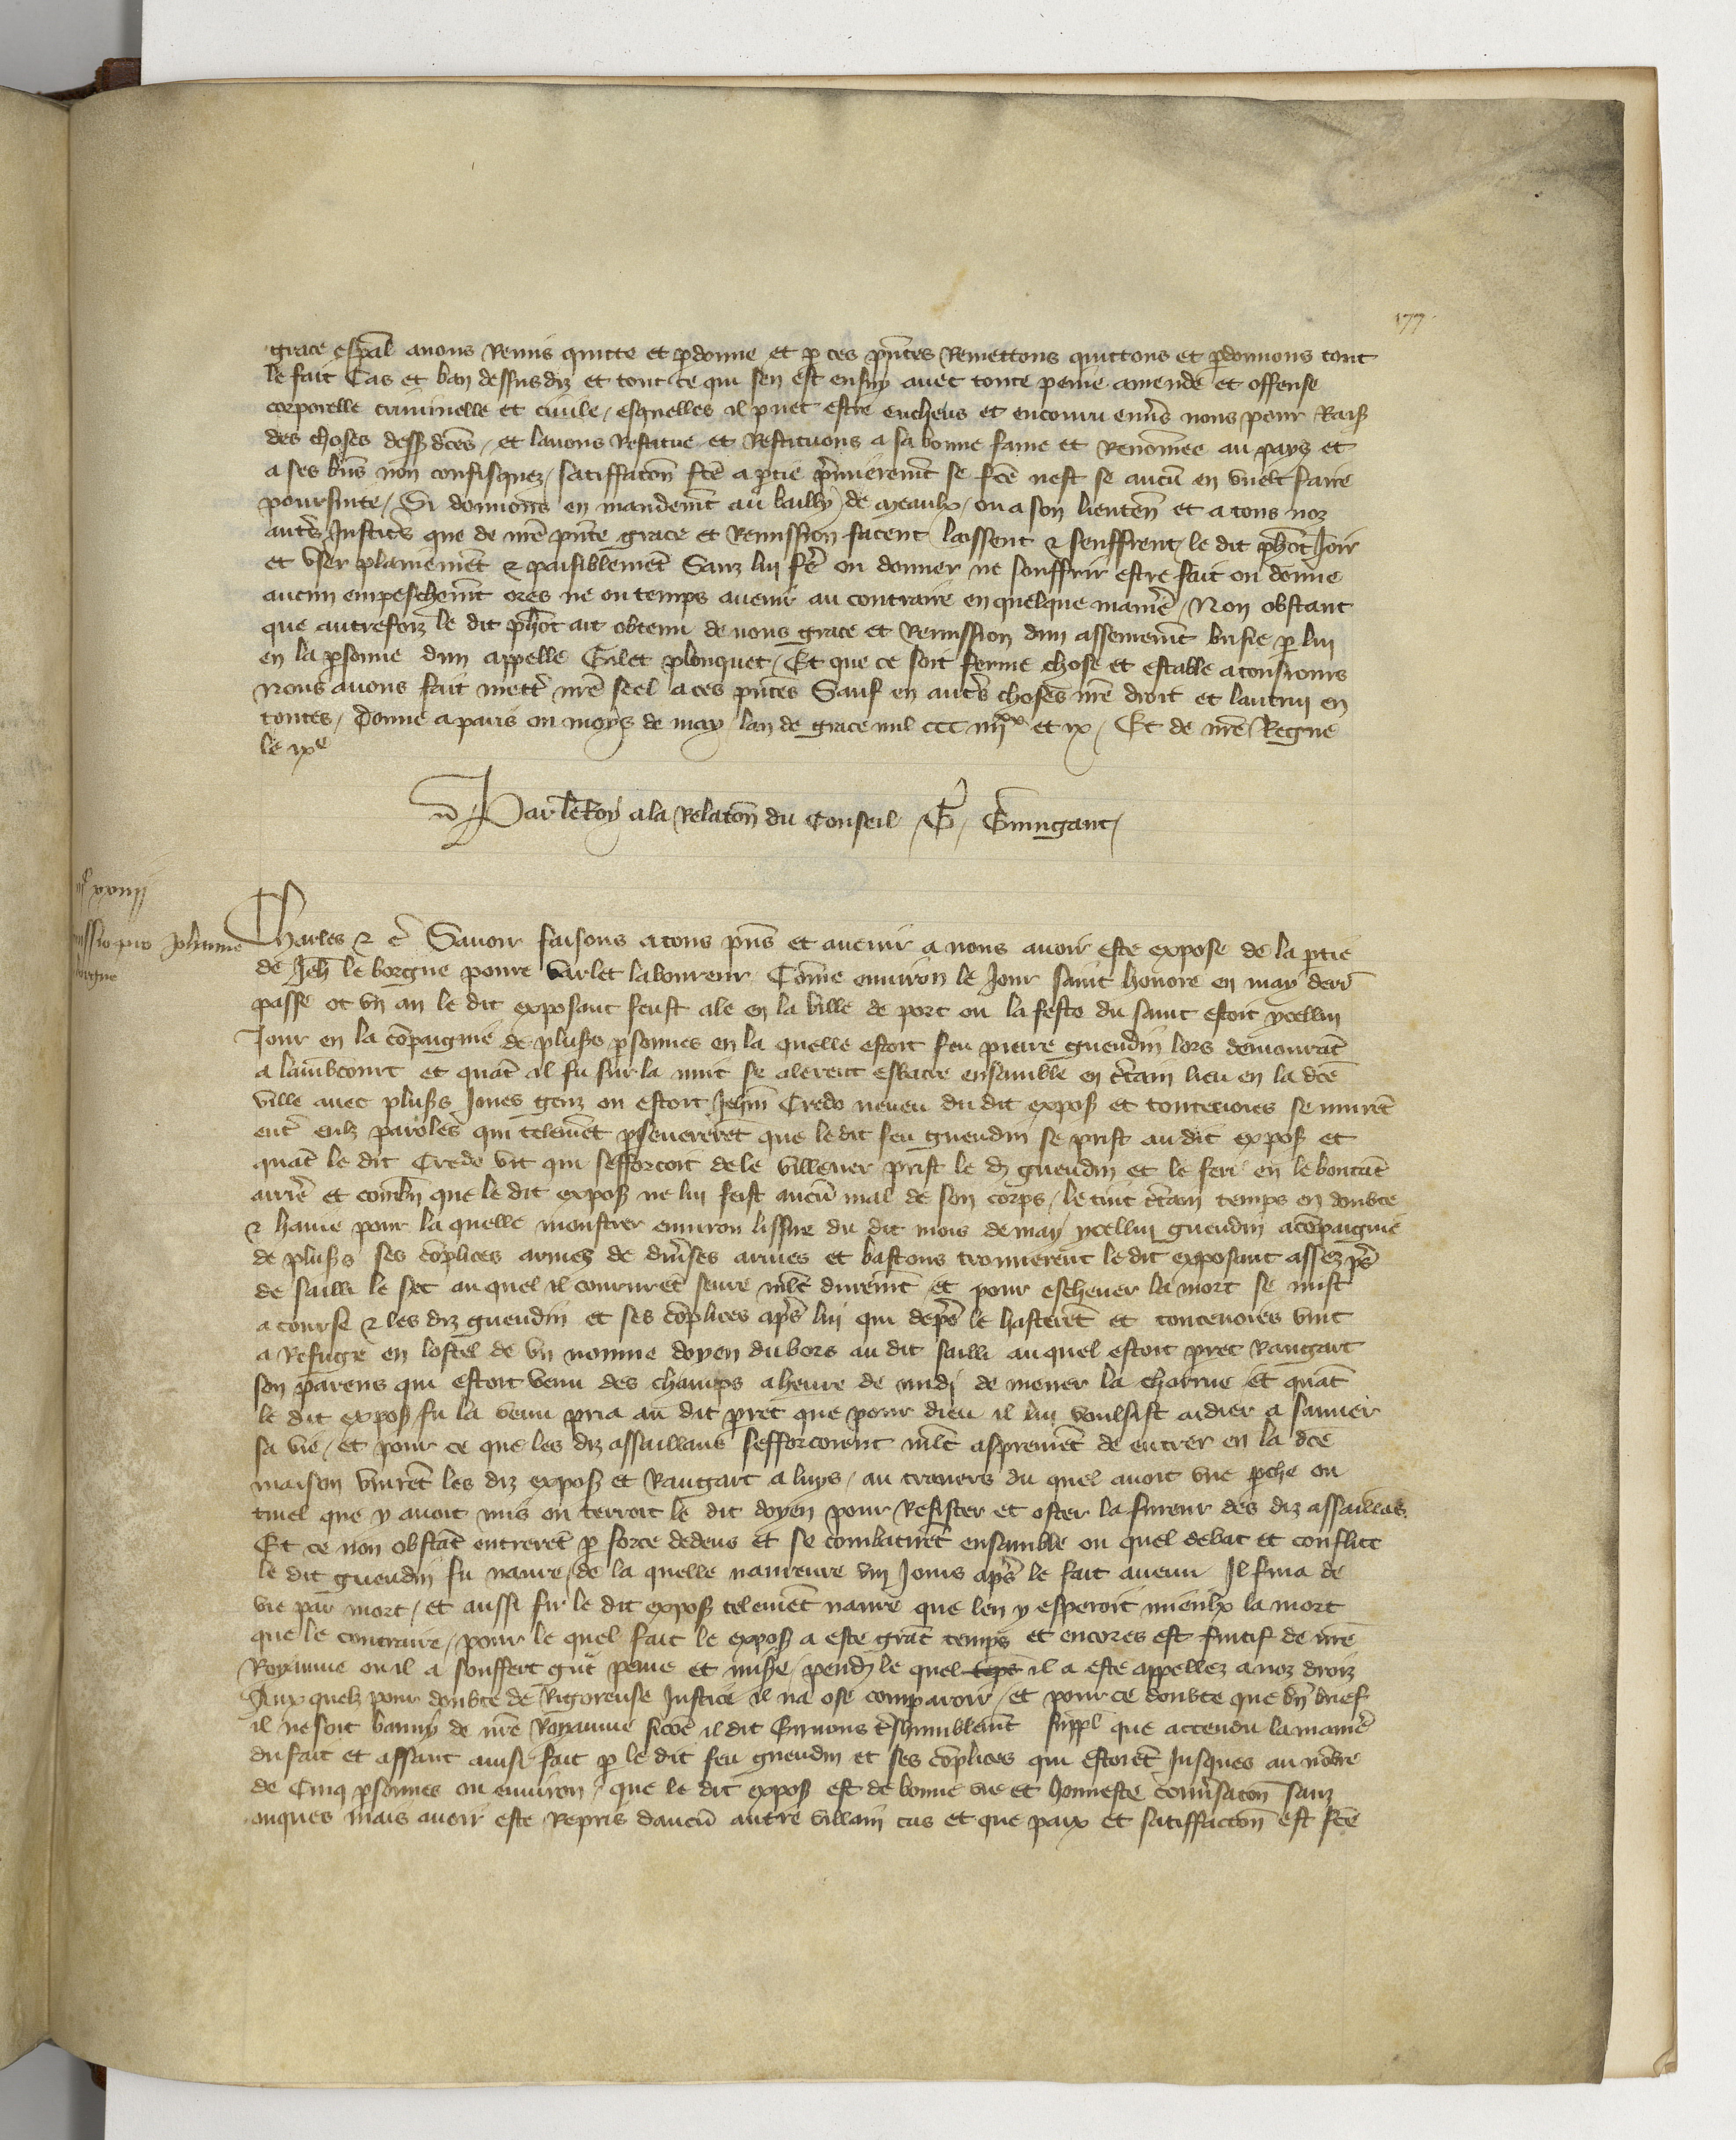 177
grace esp̄al auons Remis quitte et pdonne et p ces pn̄tes Remettons quittons et pdonnons tout
le fait Cas et ban dessusdiz et tout ce qui sen est ensuy auec toute peine amende et offense
corporelle criminelle et ciuile / esquelles il puet estre encheus et encouru enu̓s nous pour Raiß
des choses dess dc̄es / et lauons Restitue et Restituons a sa bonne fame et Renom̄ee au pays et
a ses bn̄s non confisquez / satiffacōn fc̄e a ptie p̓mieremt̄ se fc̄e nest se aucū en vuelt faire
poursuite / Si donnons en mandemt̄ au bailly de meaulx / ou a son lieuten̄ et a tous noz
autr̓s Justic̓s que de nr̄e pn̄te grace et Remission facent laissent & seuffrent le dit ph̄ot Joir
et vser plainemēt & paisiblemēt Sanz lui fr̓e ou donner ne souffrir estre fait ou donne
aucun empeschemt̄ ores ne ou temps auenir au contraire en quelque manie̓ / Non obstant
que autrefoiz le dit ph̄ot ait obtenu de nous grace et Remission dun assemt̄ brisie p lui
en la psonne dun appelle Gilet plonquet / Et que ce soit ferme chose et estable a tousiours
Nous auons fait mettr̓ nr̄e seel a ces pn̄tes Sauf en autr̓s choses nr̄e droit et lautrui en
toutes / Donne a paris ou moys de may lan de grace mil CCC iiijxx et ix / Et de nr̄e Regne
le ixe
Par le Roy a la Relacōn du Conseil / G / Guingant /
xxviij
ssio pro Johanne
borgne
Charles & c̄ Sauoir faisons a tous pn̄s et auenir a nous auoir este expose de la ptie
de Jeh̄ le borgne poure varlet laboureur Com̄e enuiron le Jour saint honore en may dern̄
passe ot vn an le dit exposant feust ale en la ville de port ou la feste du saint estoit ycellui
Jour en la cōpaignie de pluß psonnes en la quelle estoit feu pierre gueudin lors demourāt
a lambcourt et quāt il fu sur la nuit se alerent esbatre ensamble en c̓tain lieu en la dc̄e
ville auec pluß Jones genz ou estoit Jehan̄ Credo neueu du dit expoß et toutevoies se murēt
entr̓ eulz paroles qui telemēt pseuererēt que le dit feu gueudin se prist au dit expoß et
quāt le dit Credo vit qui sefforcoit de le villener prist le d̄ gueudin et le feri en le boutāt
arrie̓ et combn̄ que le dit expoß ne lui feist aucū mal de son corps / le tint c̓tain temps en doubte
& haine pour la quelle monstrer enuiron lissue du dit mois de may ycellui gueudin acōpaignie
de pluß ses cōplices armez de diu̓ses armes et bastons trouuerent le dit exposant assez p̓s
de sailli le sec au quel il coururēt seure ml̄t duremt̄ et pour escheuer la mort se mist
a course & les diz gueudin et ses cōplices ap̓s lui qui dep̓s le hasterēt et toutevoies vint
a Refuge en lostel de vn nomme doyen dubois au dit sailli au quel estoit pret Raugart
son parens qui estoit venu des champs a heure de midi de mener la charrue et quāt
le dit expoß fu la venu pria au dit pret que pour dieu il lui voulsist aidier a sauuer
sa vie / et pour ce que les diz assaillans sefforcoient ml̄t asprement de entrer en la dc̄e
maison vinrēt les diz expoß et Raugart a luys / au trauers du quel auoit vne pche ou
tinel que y auoit mis ou terroit le dit doyen pour Resister et oster la fureur des diz assaillās.
Et ce non obstāt entrerēt p force dedens et se combatirēt ensamble ou quel debat et conflict
le dit gueudin fu naure / de la quelle naureure viij Jours ap̓s le fait auenu Il fina de
vie par mort / et aussi fu le dit expoß telemēt naure que len y esperoit mieulx la mort
que le contraire / pour le quel fait le expoß a este grāt temps et encores est fuitif de nr̄e
Royaume ou il a souffert gn̄t peine et miß̄e / pend̄ le quel teps il a este appellez a noz droiz
Aux quelz pour doubte de Rigoreuse Justice il na ose comparoir / et pour ce doubte que dn̄ brief
il ne soit banny de nr̄e Royaume sicōe il dit En nous tr̓shumblemt̄ suppl̄ que attendu la manie̓
du fait et assaut ainsi fait p le dit feu gueudin et ses cōplices qui estoiēt Jusques au nōbre
de Cinq psonnes ou enuiron / que le dit expoß est de bonne vie et honneste conu̓sacōn sanz
onques mais auoir este Repris daucū autre villain cas et que paix et satiffaccōn est fc̄e